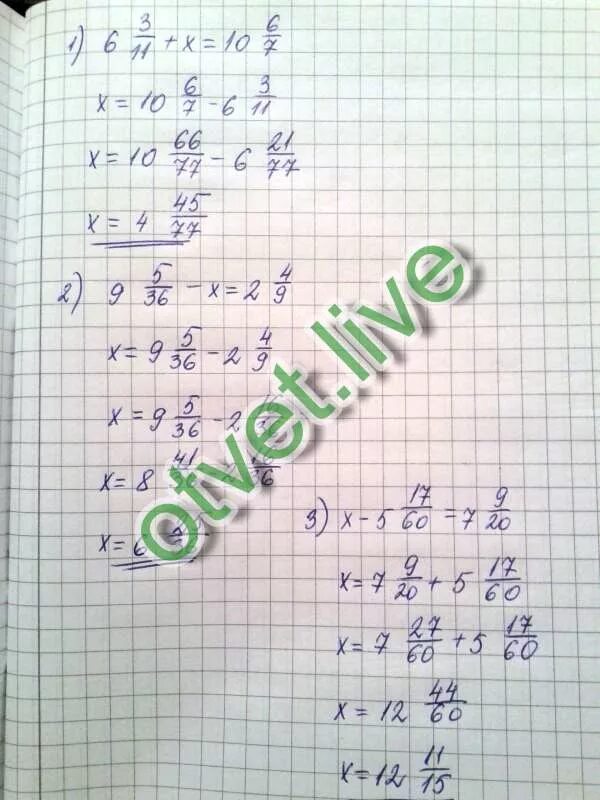 1) 6 3/11 + x = 10 6/7
x = 10 6/7 - 6 3/11
x = 10 66/77 - 6 21/77
x = 4 45/77
2) 9 5/36 - x = 2 4/9
x = 9 5/36 - 2 4/9
x = 9 5/36 - 2
x = 8 41/36
x = 6
3) x - 5 17/60 = 7 9/20
x = 7 9/20 + 5 17/60
x = 7 27/60 + 5 17/60
x = 12 44/60
x = 12 11/15
otvet.live